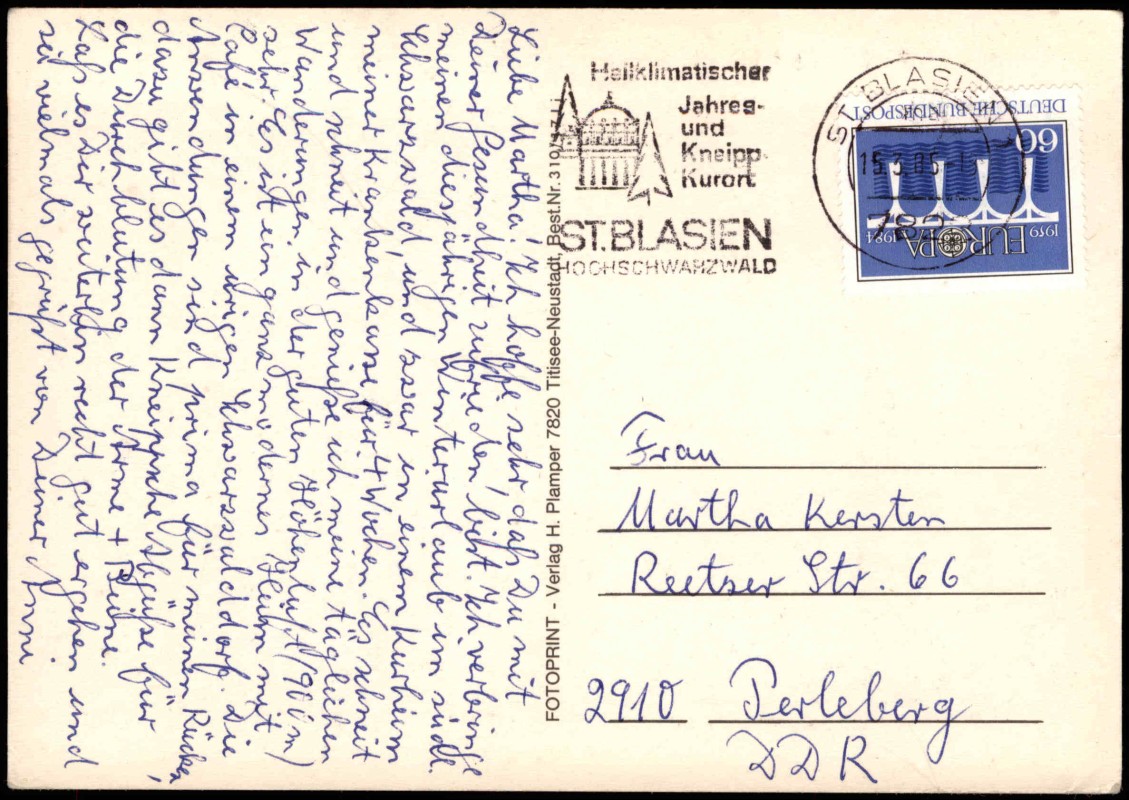 Liebe Martha! Ich hoffe sehr, daß Du mit
Deiner Gesundheit zufrieden bist. Ich verbringe
meinen diesjährigen Winterurlaub im südl.
Schwarzwald, und zwar in einem Kurheim
meiner Krankenkasse, für 4 Wochen. Es schneit
und schneit und genieße ich meine täglichen
Wanderungen in der guten Höhenluft (900 m)
sehr. Es ist ein ganz modernes Heim mit
Café in einem urigen Schwarzwalddorf. Die
Anwendungen sind prima für meinen Rücken,
dazu gibt es dann Kneippsche Abgüße für
die Durchblutung der Arme + Beine.
Laß es Dir weiterhin recht gut ergehen und
sei vielmals gegrüßt von Deiner Anni
FOTOPRINT - Verlag H. Plamper 7820 Titisee-Neustadt, Best.Nr. 310/
Heilklimatischer
Jahres-
und
Kneipp-
Kurort
ST. BLASIEN
HOCHSCHWARZWALD
ST. BLASIEN
15.3.85
782
DEUTSCHE BUNDESPOST
60
1959 1984
EUROPA
Frau
Martha Kersten
Reetzer Str. 66
2910 Perleberg
DDR